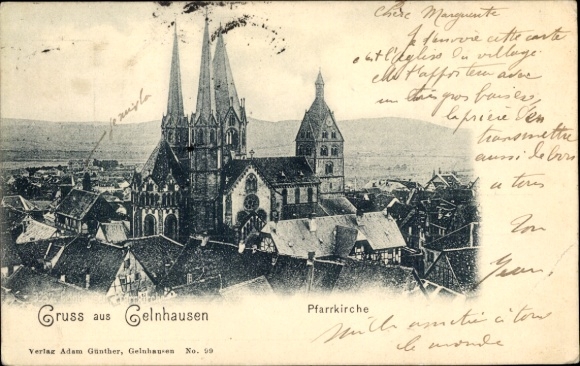 Chère Marguerite
Je t'envoie cette carte
c'est l'église du village
elle t'apportera avec
un gros baiser
la prière d'en
transmettre
aussi de bons
à tous
Ton
Gruss aus Gelnhausen
Pfarrkirche
Mille amitiés à tous
le monde
Verlag Adam Günther, Gelnhausen No. 99